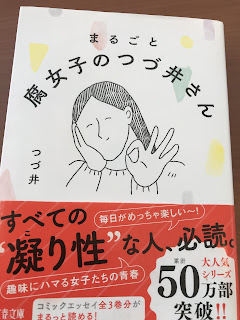 まるごと
腐女子のつづ井さん
つづ井
すべての
毎日がめっちゃ楽しい〜!
"凝り性"な人、必読。
こ しょう
趣味にハマる女子たちの青春
コミックエッセイ全3巻分が
まるっと読める!
大人気
シリーズ
累計
50万部
突破!!
春文庫